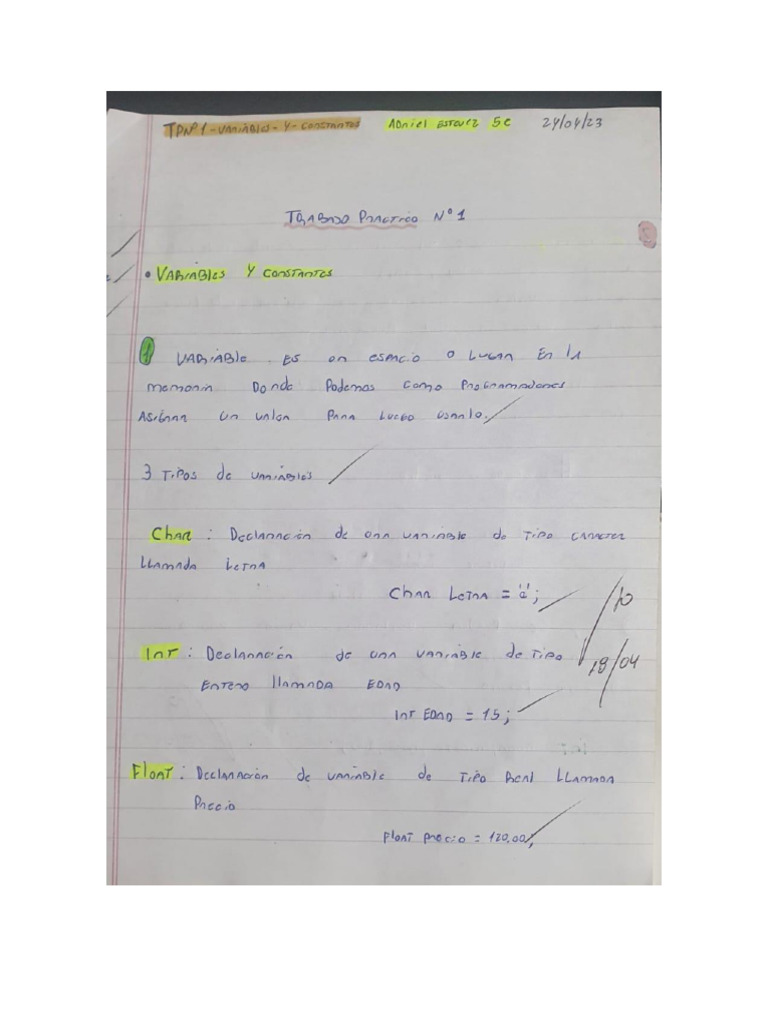 TPNº1-VARIABLES-Y-CONSTANTES ADRIEL ESTEVEZ 5C 24/04/23
TRABAJO PRACTICO Nº1
• VARIABLES Y CONSTANTES
1 VARIABLE ES un ESPACIO O LUGAR EN la
MEMORIA DONDE PODEMOS COMO PROGRAMADORES
ASIGNAR UN VALOR PARA LUEGO USARLO.
3 TIPOS de VARIABLES
CHAR : DECLARACIÓN DE UNA VARIABLE DE TIPO CARACTER
LLAMADA LETRA
CHAR LETRA = "a";
10
INT : DECLARACIÓN de UNA VARIABLE DE TIPO
19/04
ENTERO LLAMADA EDAD
INT EDAD = 15;
FLOAT : DECLARACIÓN de VARIABLE de TIPO REAL LLAMADA
PRECIO
FLOAT PRECIO = 120.00;